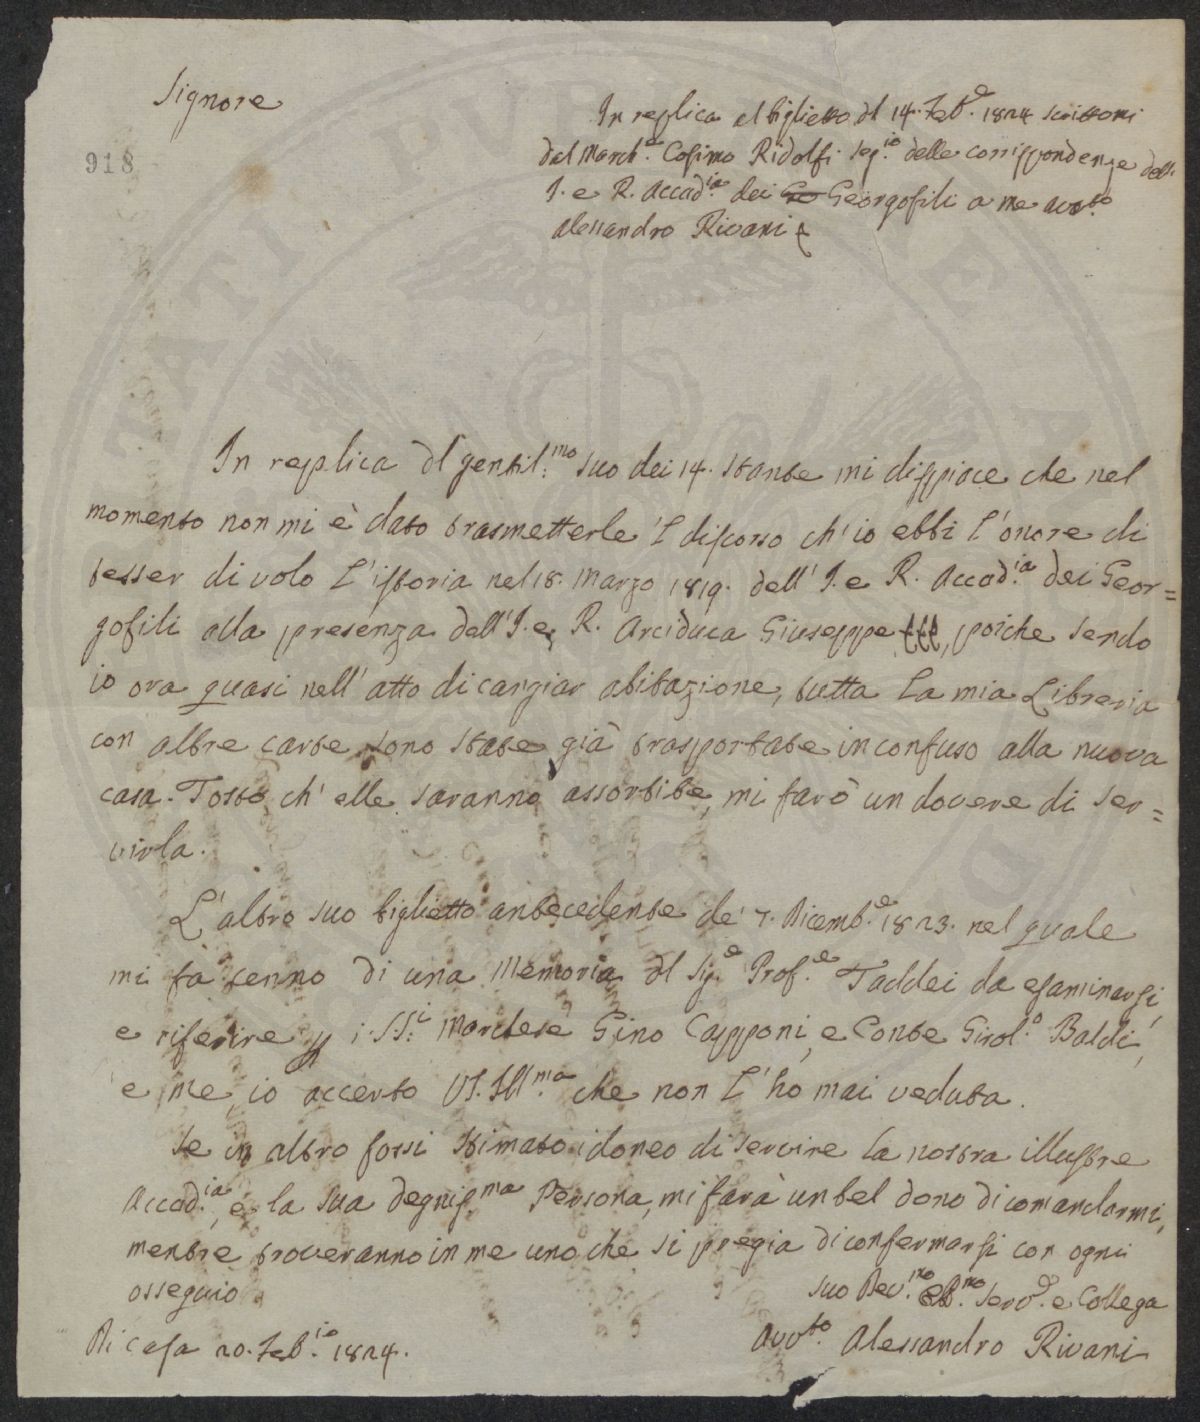 Signore
918
In replica al biglietto dl 14. Feb.e 1824 scrittomi
dal March.e Cosimo Ridolfi Seg.io delle corrispondenze dell'
I. e R. Accad.ia dei Ge Georgofili a me Avv.to
Alessandro Rivani
In replica dl gentil.mo suo dei 14. stante mi dispiace che nel
momento non mi è dato trasmetterle 'l discorso ch' io ebbi l'onore di
tesser di volo l'istoria nel 18. Marzo 1819. dell' I. e R. Accad.ia dei Geor=
gofili alla presenza dell' I. e R. Arciduca Giuseppe, poiche sendo
io ora quasi nell' atto di cangiar abitazione, tutta la mia Libreria
con altre carte sono state già trasportate in confuso alla nuova
casa. Tosto ch' elle saranno assortite, mi farò un dovere di ser=
virla.
L'altro suo biglietto antecedente de' 7. Dicemb.e 1823. nel quale
mi fà cenno di una Memoria dl Sig.e Prof.e Taddei da esaminarsi,
e riferire p i SS.i Marchese Gino Capponi, e Conte Girol.o Baldi,
e me, io accerto VS. Ill.ma che non l'ho mai veduta.
Se in altro fossi stimato idoneo di servire la nostra illustre
Accad.ia, e la sua degnis.ma Persona, mi farà un bel dono di comandarmi,
mentre troveranno in me uno che si pregia di confermarsi con ogni
osseguio
suo Dev.mo ed Ob.mo Serv.e e Collega
Di Casa 20. Feb.io 1824.
Avv.to Alessandro Rivani